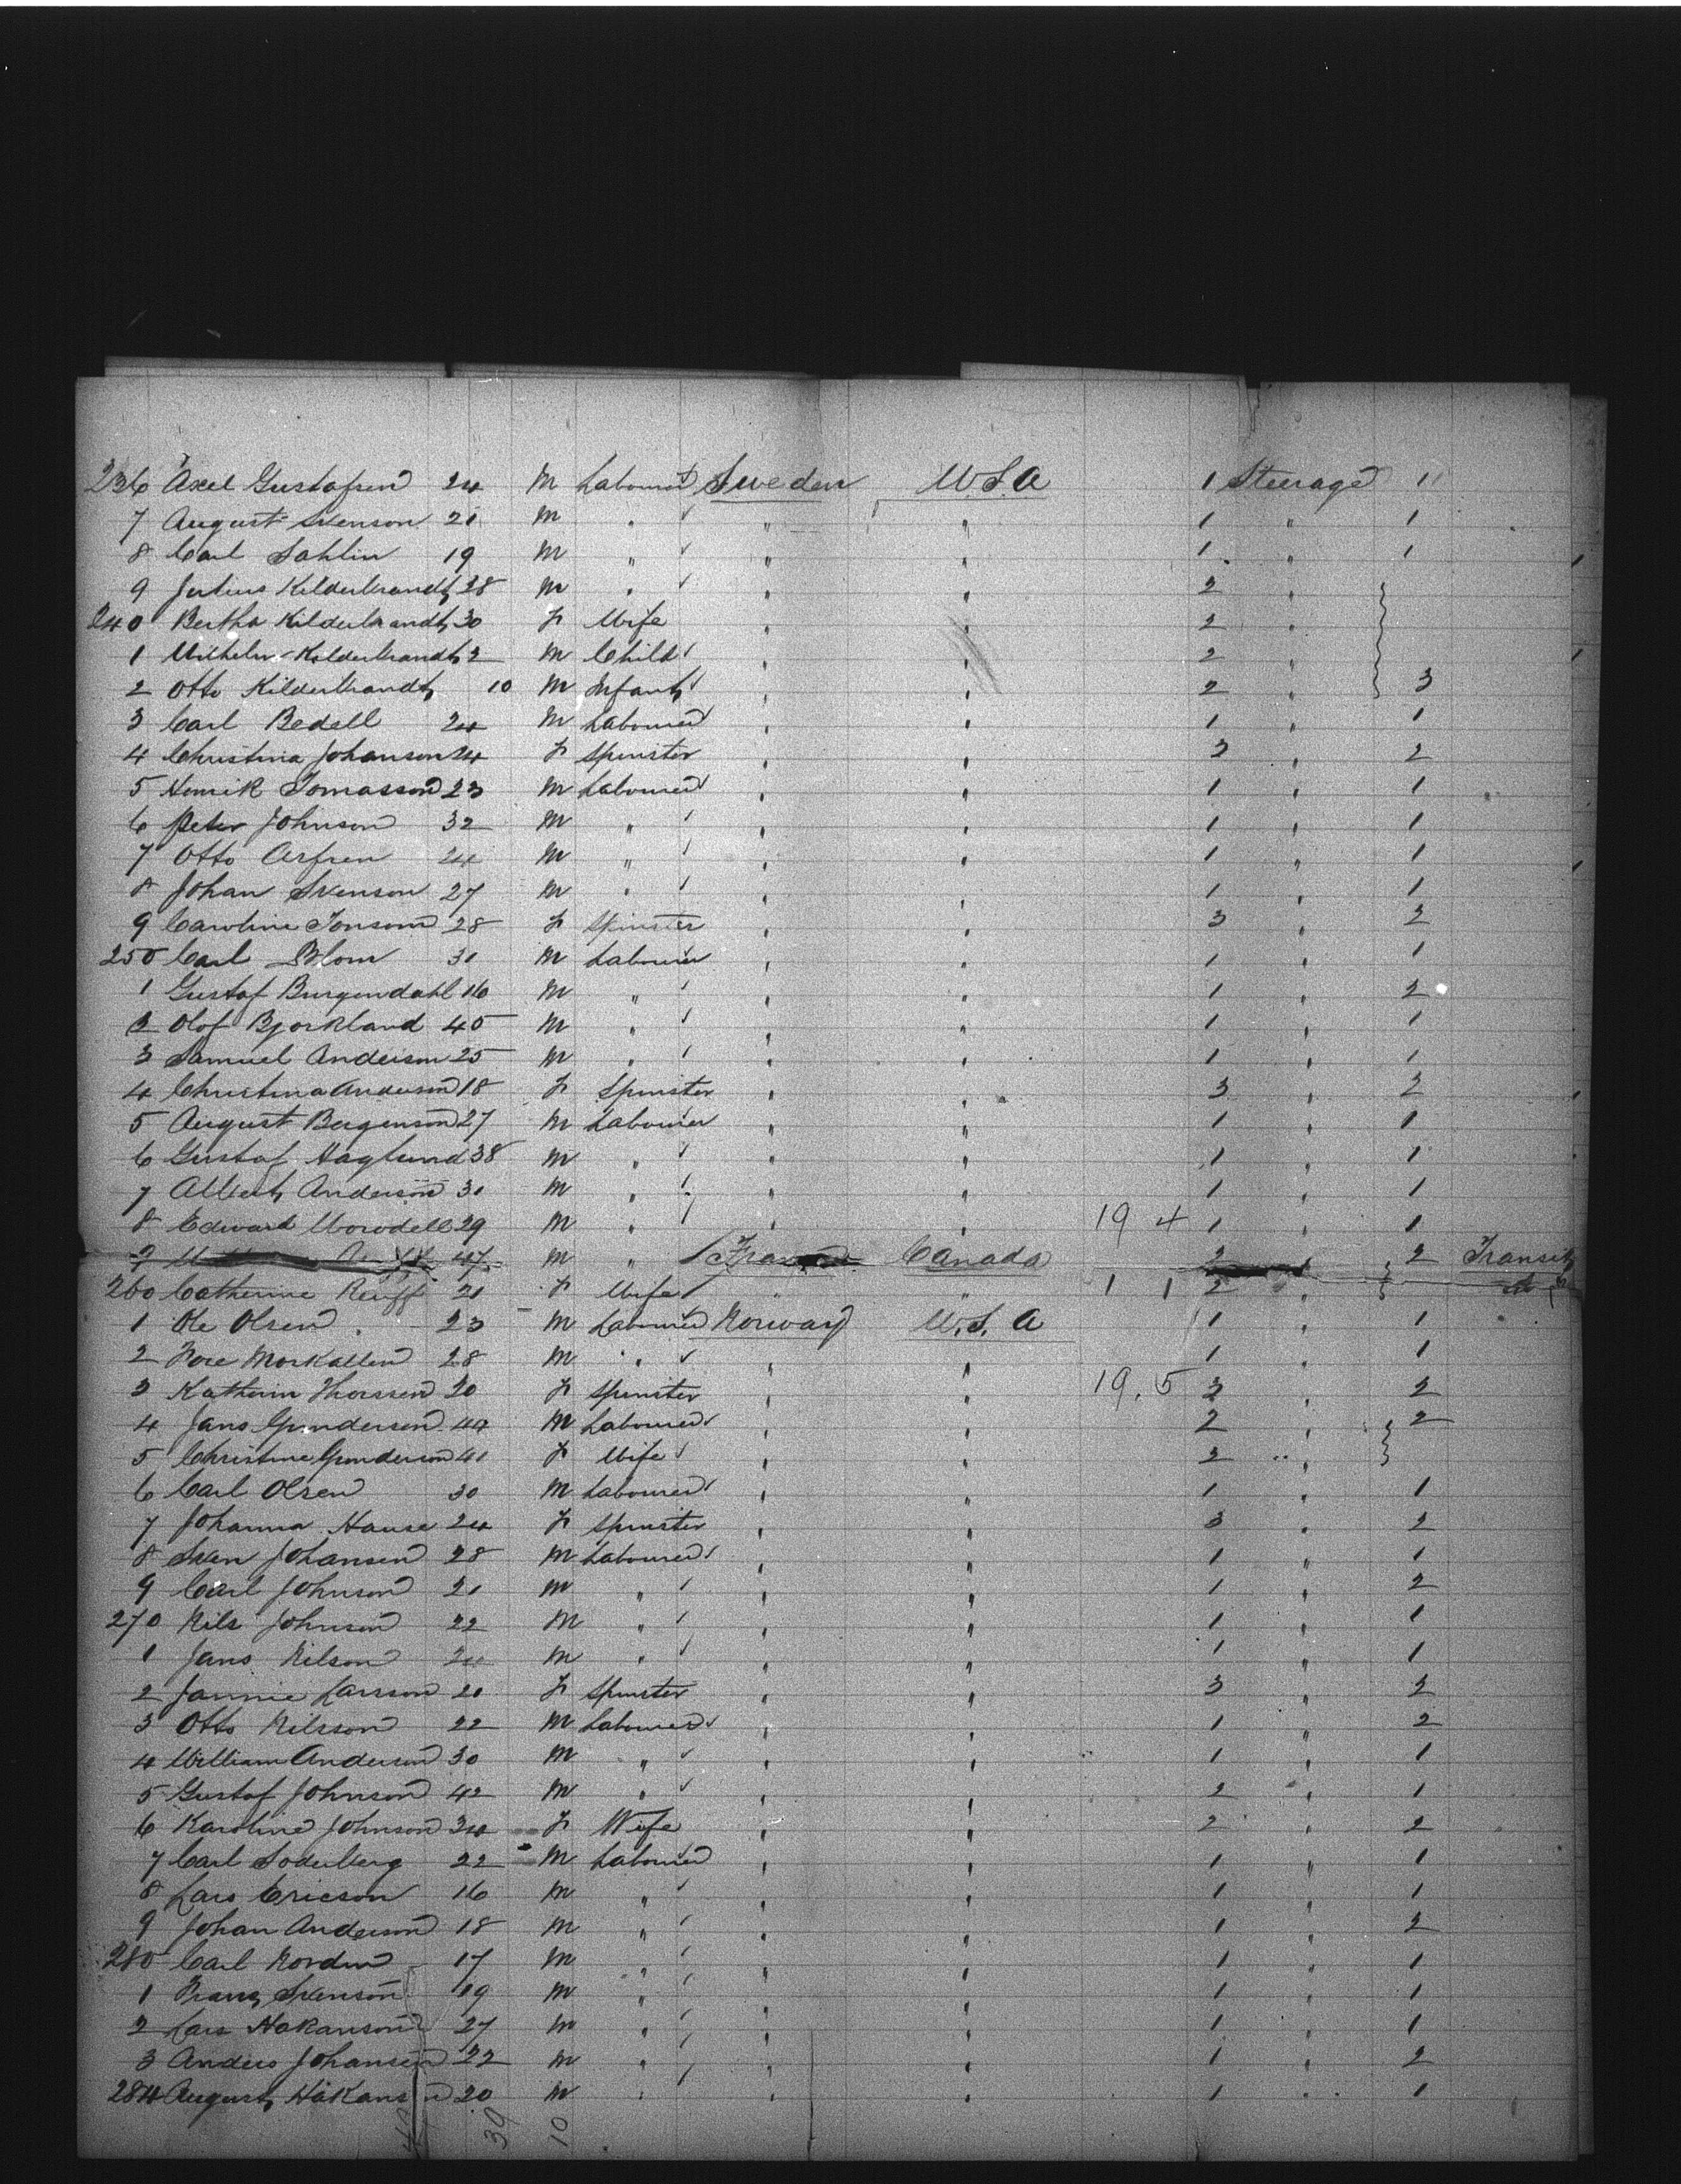 236 Axel Gustafsen 24 M Labourer Sweden U S A 1 Steerage 1
7 August Svenson 21 M " " " 1 " 1
8 Carl Sahlin 19 M " " " 1 " 1
9 Julius Kilderbrandt 28 M " " " 2 "
240 Bertha Kilderbrandt 30 F Wife " " 2 "
1 Wilhelm Kilderbrandt 2 M Child " " 2 "
2 Otto Kilderbrandt 10 M Infant " " 2 " 3
3 Carl Bedell 24 M Labourer " " 1 " 1
4 Christina Johanson 24 F Spinster " " 3 " 2
5 Henrik Tomasson 23 M Labourer " " 1 " 1
6 Peter Johnson 32 M " " " 1 " 1
7 Otto Arfren 24 M " " " 1 " 1
8 Johan Svenson 27 M " " " 1 " 1
9 Caroline Jonson 28 F Spinster " " 3 " 2
250 Carl Blom 31 M Labourer " " 1 " 1
1 Gustaf Burgendahl 16 M " " " 1 " 2
2 Olof Bjorkland 45 M " " " 1 " 1
3 Samuel Anderson 25 M " " " 1 " 1
4 Christina Anderson 18 F Spinster " " 3 " 2
5 August Bergenson 27 M Labourer " " 1 " 1
6 Gustaf Haglund 38 M " " " 1 " 1
7 Albert Anderson 31 M " " " 1 " 1
8 Edward Worodell 29 M " " " 19 4 1 " 1
9 47 M " Canada 2 " 2 Transit
260 Catherine Reuff 21 F Wife " " 1 1 2 "
1 Ole Olsen 23 M Labourer Norway U.S. A 1 " 1
2 Tore Morkallen 28 M " " " 1 " 1
3 Katherin Thorssen 20 F Spinster " " 19. 5 3 " 2
4 Jans Gunderson 49 M Labourer " " 2 " 2
5 Christine Gunderson 41 F Wife " " 2 "
6 Carl Olsen 30 M Labourer " " 1 " 1
7 Johanna Hause 24 F Spinster " " 3 " 2
8 Sven Johansen 28 M Labourer " " 1 " 1
9 Carl Johnson 21 M " " " 1 " 2
270 Nils Johnson 22 M " " " 1 " 1
1 Jans Nilson 24 M " " " 1 " 1
2 Jannie Larsson 21 F Spinster " " 3 " 2
3 Otto Nilsson 22 M Labourer " " 1 " 2
4 William Anderson 30 M " " " 1 " 1
5 Gustaf Johnson 42 M " " " 2 " 1
6 Karoline Johnson 34 F Wife " " 2 " 2
7 Carl Soderberg 22 M Labourer " " 1 " 1
8 Lars Ericson 16 M " " " 1 " 1
9 Johan Anderson 18 M " " " 1 " 2
280 Carl Norden 17 M " " " 1 " 1
1 Franz Svenson 19 M " " " 1 " 1
2 Lars Hakanson 27 M " " " 1 " 1
3 Anders Johansen 22 M " " " 1 " 2
284 August Håkanson 20 M " " " 1 " 1
39 10